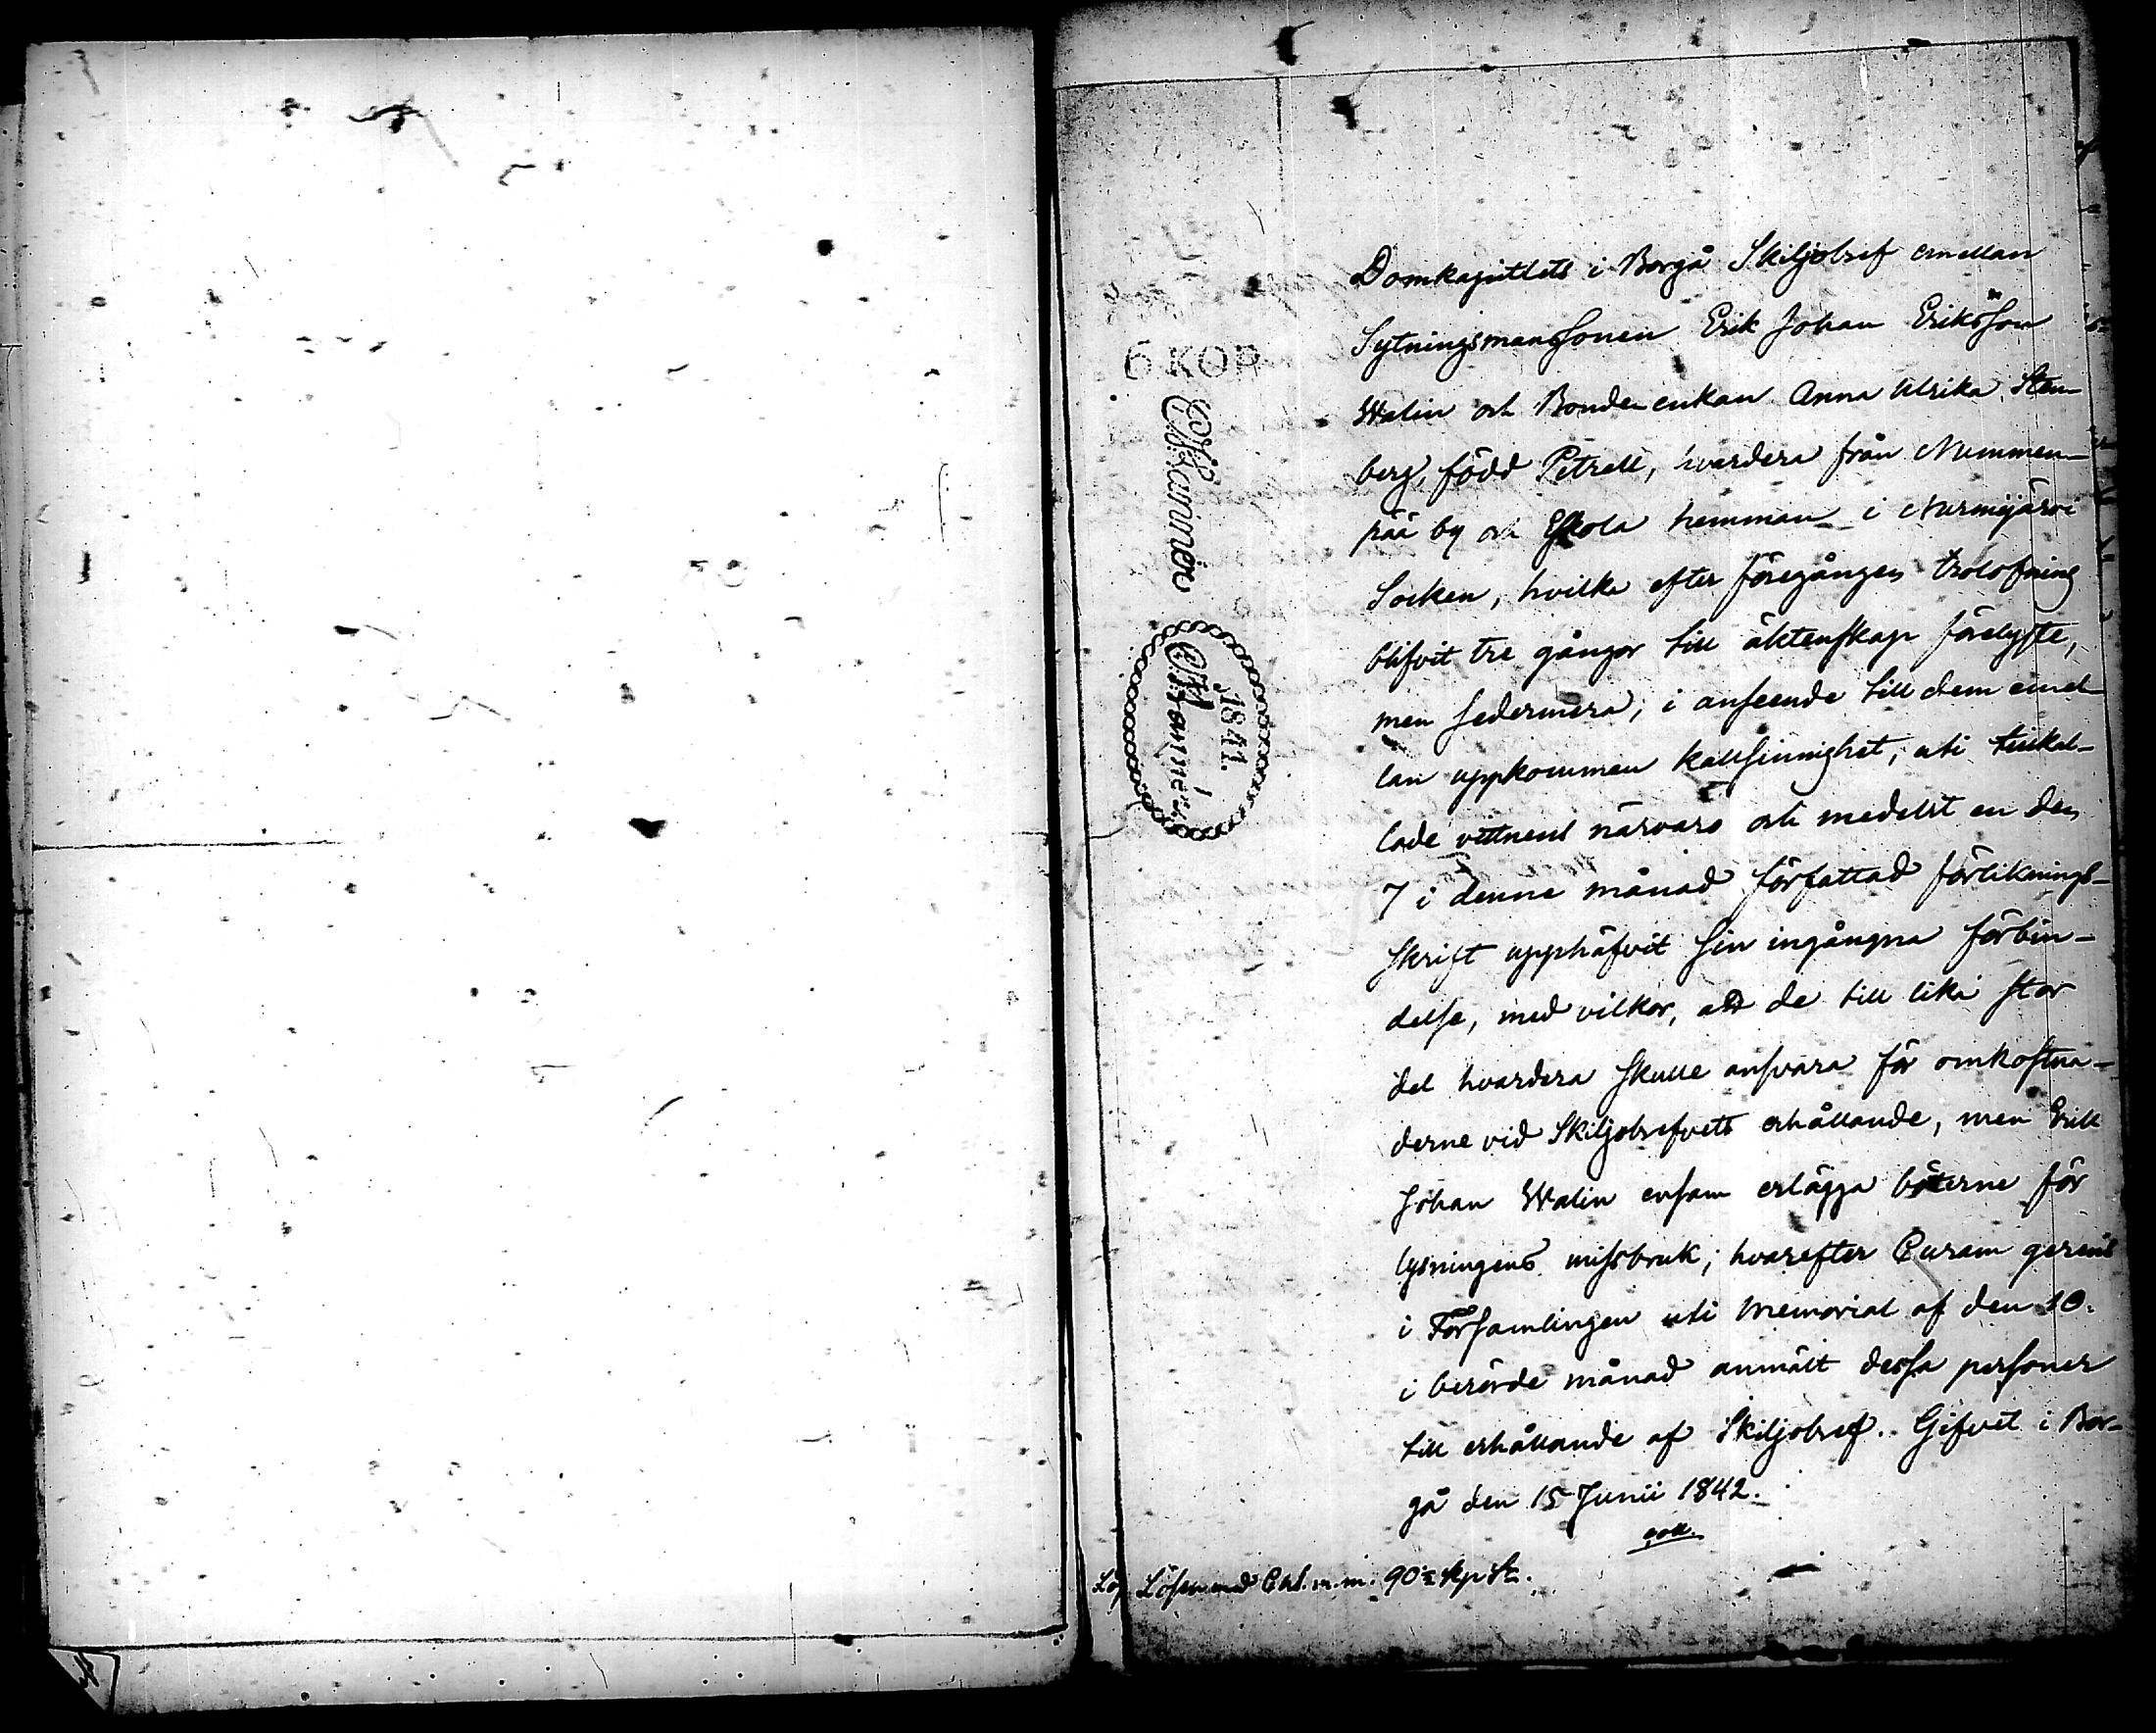 Domkapitlets i Borgå Skiljobref emellan
Sytningsmanssonen Erik Johan Eriksson
Walin och Bondeenkan Anna Ulrika Sten-
berg, född Petrell, hvardera från Nummen-
pää by och Eskola hemman i Nurmijärvi
Socken, hvilka efter föregången trolofning
blifvit tre gångor till äktenskap förelyste,
men sedermera, i anseende till dem emel-
lan uppkommen kallsinnighet, uti tillkal-
lade vittnens närvaro och medelst en den
7 i denne månad författad förliknings-
skrift upphäfvit sin ingångna förbin-
delse, med vilkor, att de till lika stor
del hvardera skulle ansvara för omkostna-
derne vid Skiljobrefvets erhållande, men Erik
Johan Walin ensam erlägga böterne för
lysningens missbruk; hvarefter Curam gerens
i Församlingen uti Memorial af den 10.
i berörde månad anmält dessa personer
till erhållande af Skiljobref. Gifvet i Bor-
gå den 15 Junii 1842.
coll.
Lösen med Chs. m.m. 90 kp Sr.
6 KOP
1841.